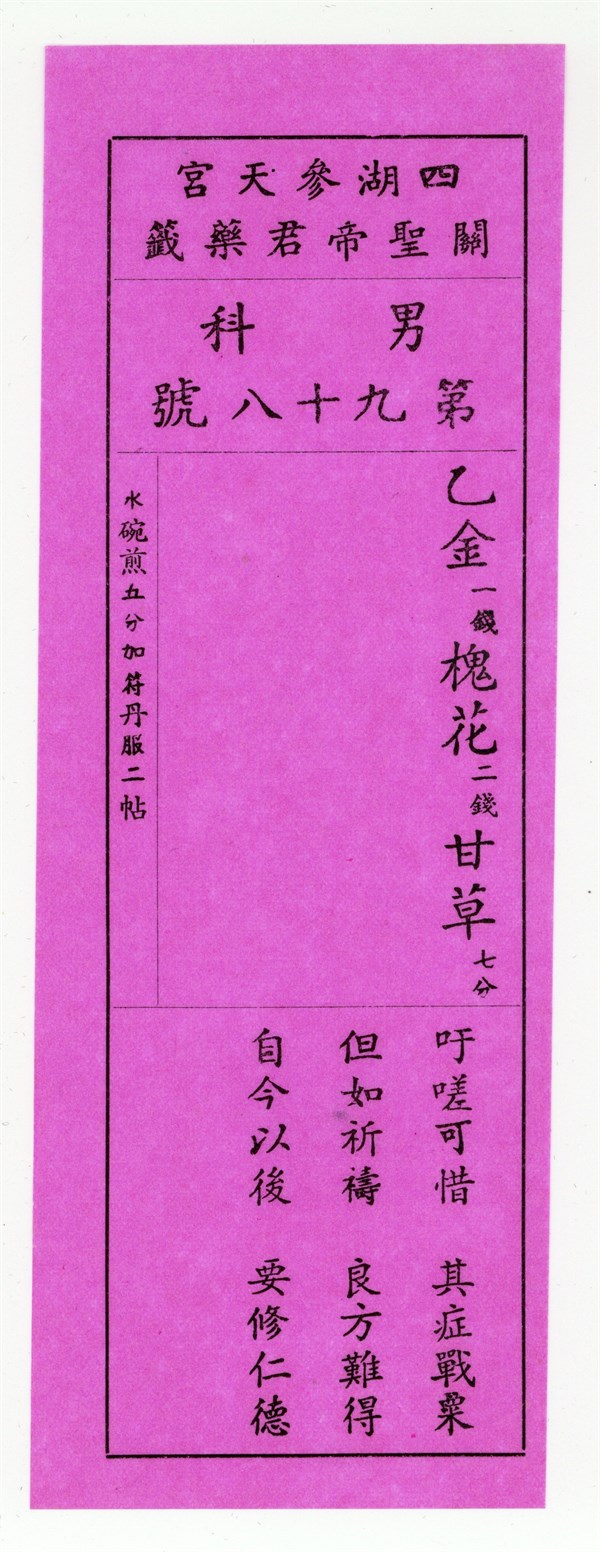 四湖參天宮
關聖帝君藥籤
男科
第九十八號
乙金一錢槐花二錢甘草七分
水碗煎五分加符丹服二帖
吁嗟可惜 其症戰粟
但如祈禱 良方難得
自今以後 要修仁德